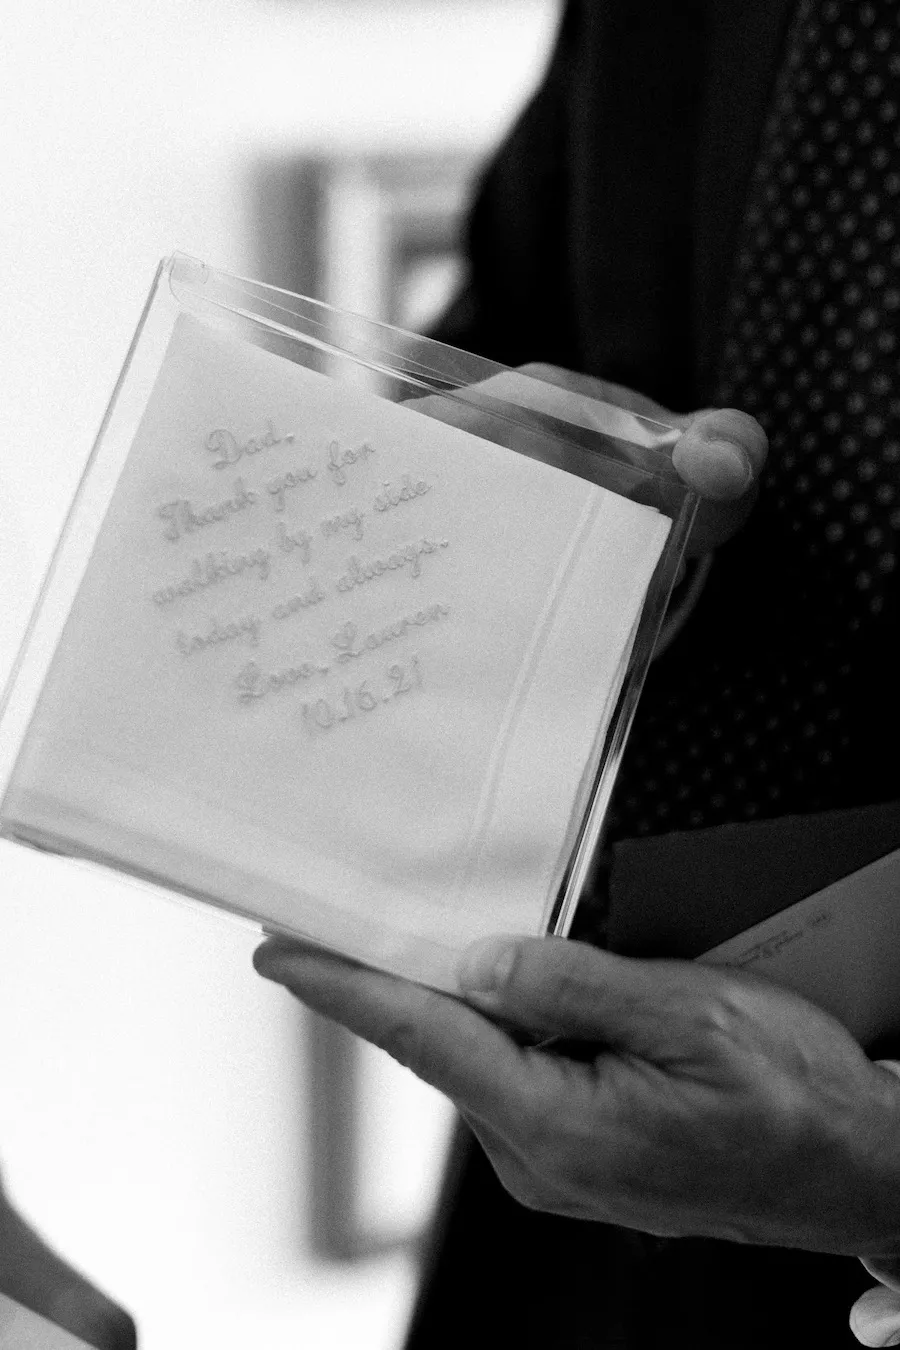 Dad,
Thank you for
walking by my side
today and always.
Love, Lauren
10.16.21